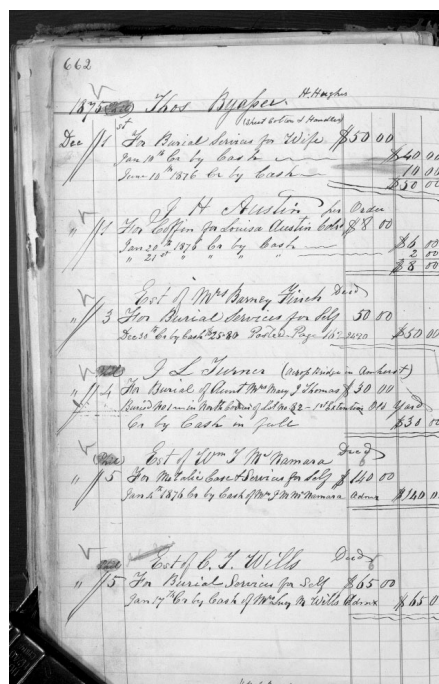 662
1875 Thos Byasser. H. Hughes
Dec 1st For Burial Services for Wife $50 00
Jan 10th Cr by Cash $40 00
June 10th 1876 Cr by Cash 10 00
$50 00
J H Austin per Order
" 1 For Coffin for Louisa Austin Cold $8 00
Jan 20th 1876 Cr by Cash $6 00
" 21st " " " " 2 00
$8 00
Est of Mrs Barney Finch Decd
" 3 For Burial Services for Self 50 00
Dec 30th Cr by Cash 25.80 Posted Page 162 24.20 $50 00
J L Turner (across bridge in Amherst)
" 4 For Burial of Aunt Mrs Mary J Thomas $30 00
Buried No 1 in North Corner of Lot No 32 1st Extention Old Yard
Cr by Cash in full $30 00
Est of Wm T McNamara Decd
" 5 For Metalic Case & Services for Self $140 00
Jan 4th 1876 Cr by Cash of Mrs J M McNamara Admx $140 00
Est of C. T. Wills Decd
" 5 For Burial Services for Self $65 00
Jan 17th Cr by Cash of Mrs Lucy M Wills Admx $65 0